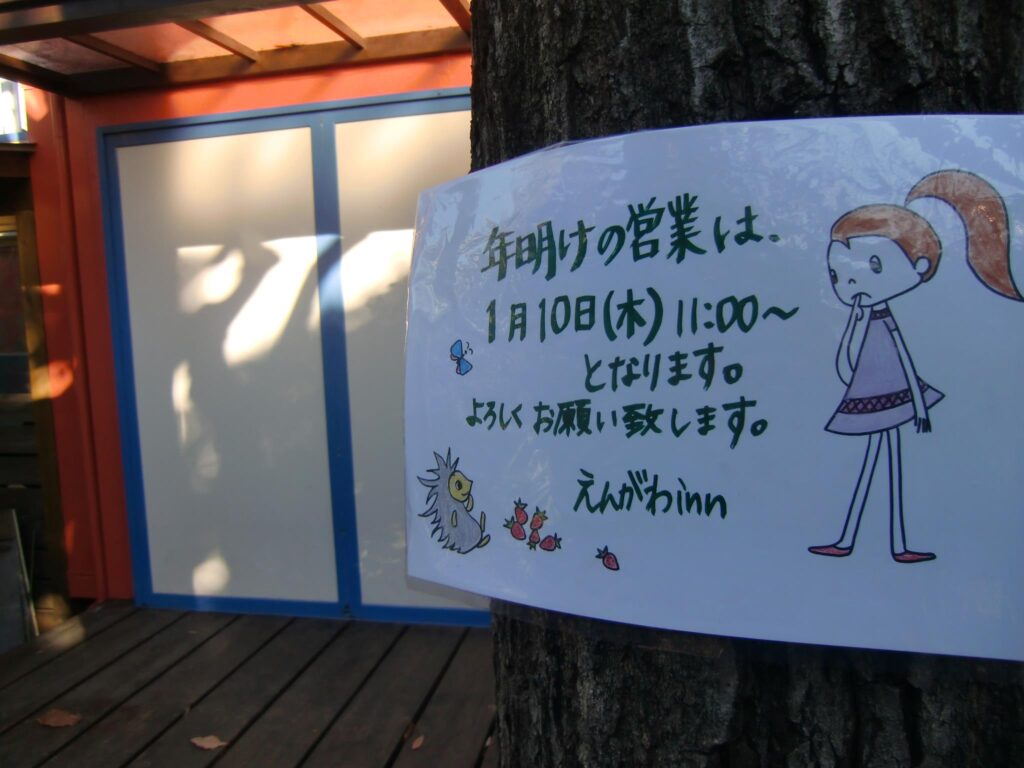 年明けの営業は、
1月10日(木) 11:00〜
となります。
よろしくお願い致します。
えんがわinn